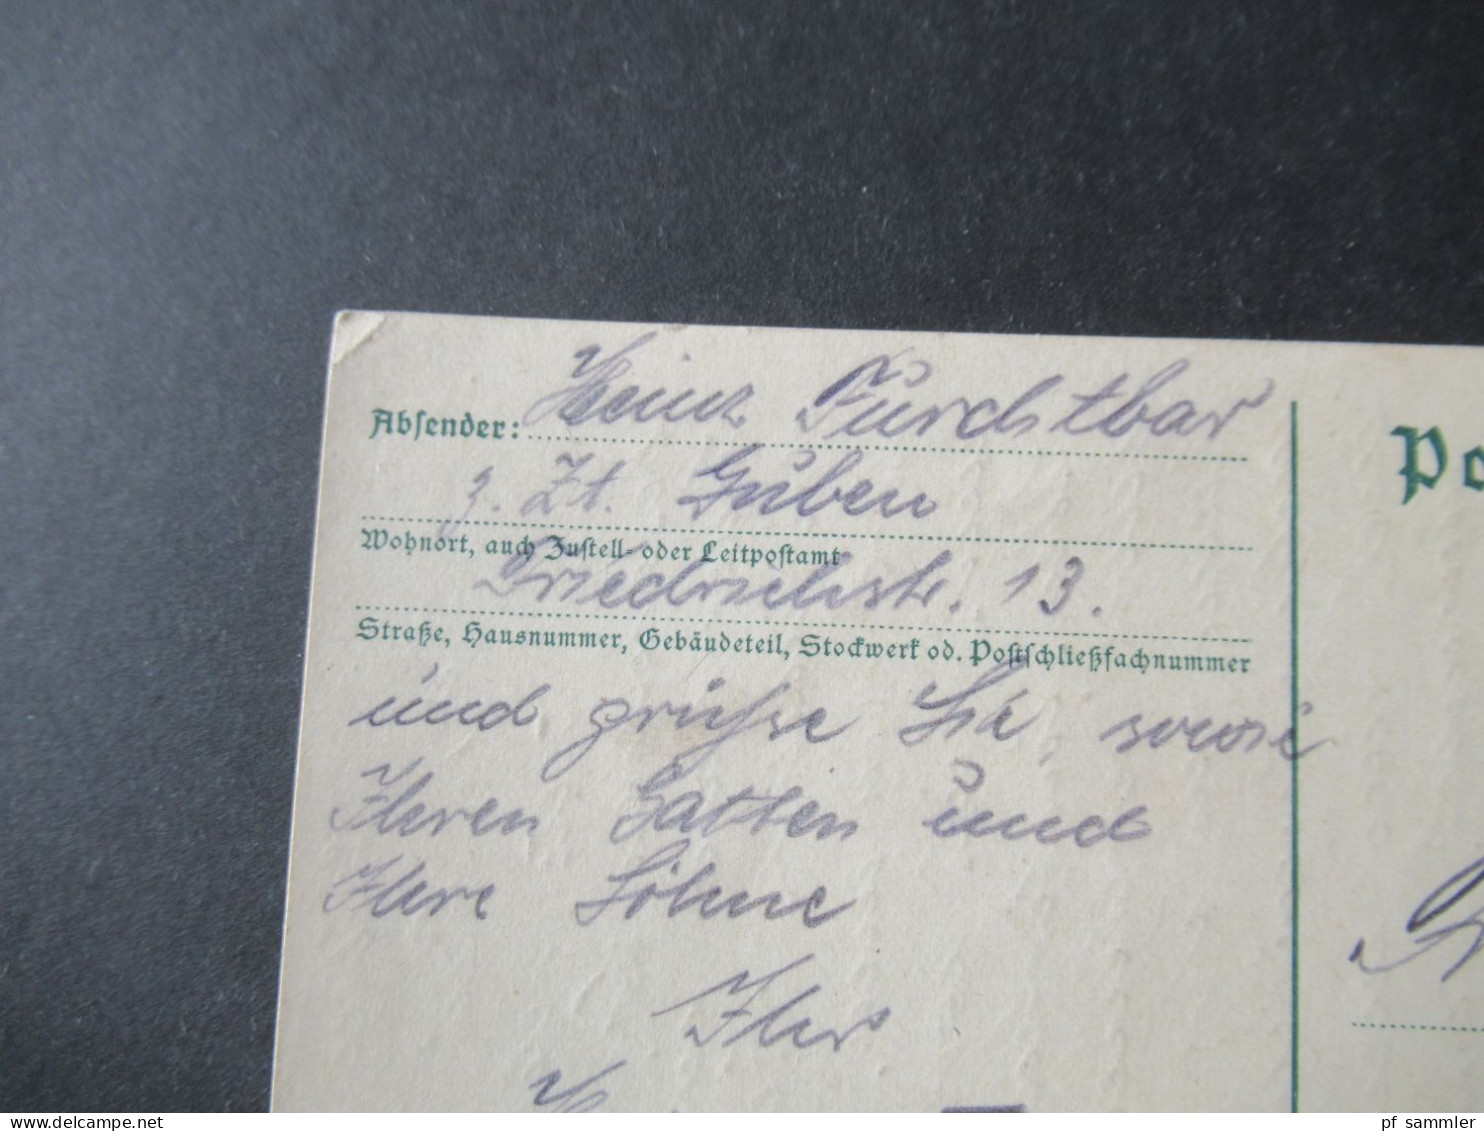 Absender: Heinz Furchtbar
z. Zt. Guben
Wohnort, auch Zustell- oder Leitpostamt
Friedrichstr. 13.
Straße, Hausnummer, Gebäudeteil, Stockwerk od. Postschließfachnummer
und grüße Sie, sowie
Ihren Gatten und
Ihre Söhne
Ihr
Po
delcampe.net
pf_sammler